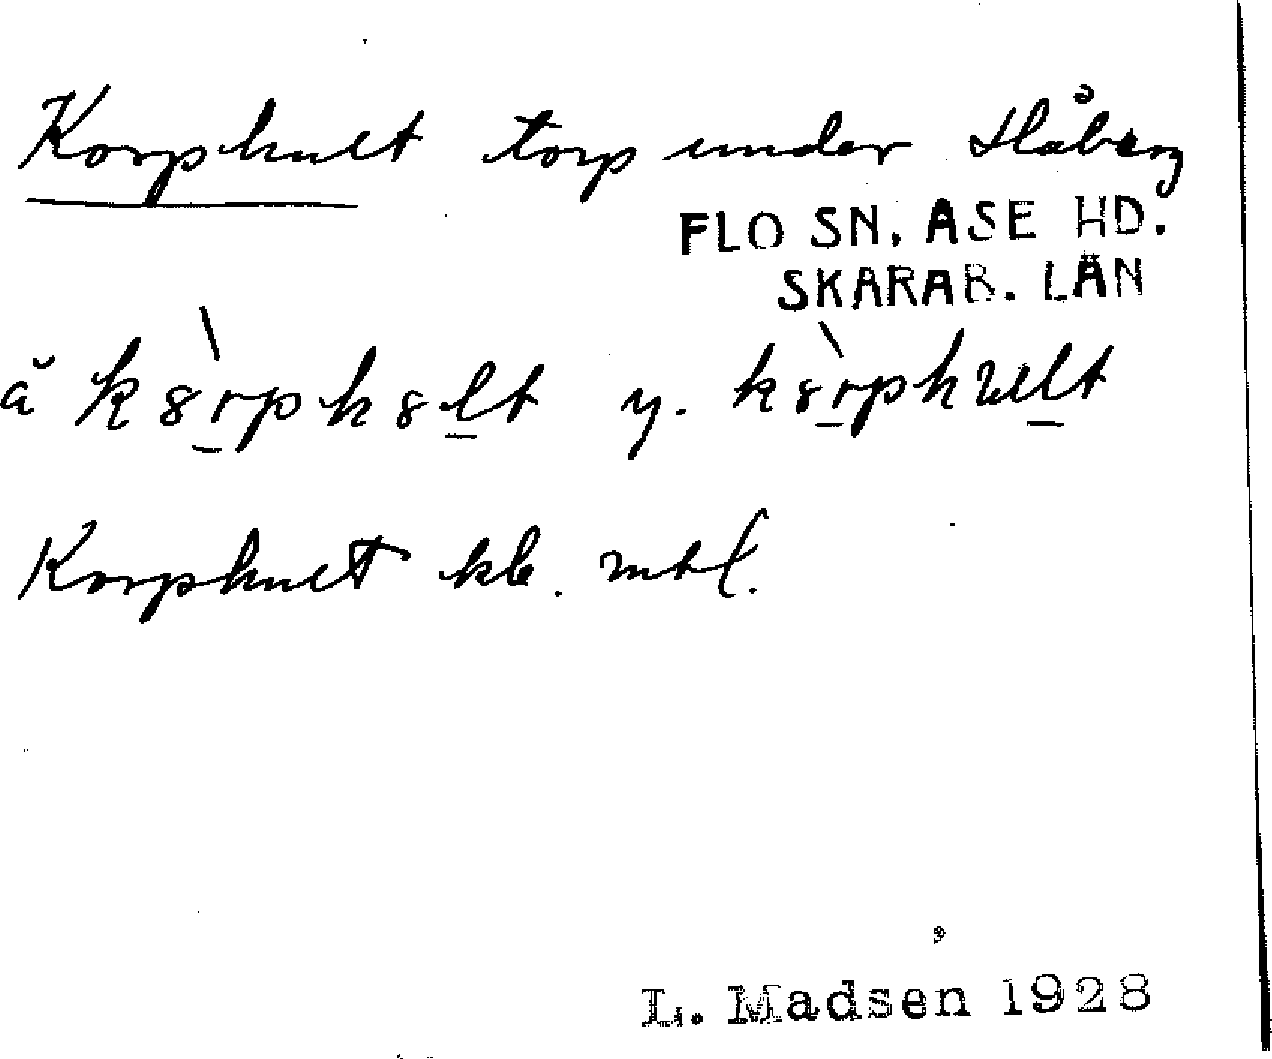 Korphult torp under Håberg
FLO SN. ASE HD.
SKARAB. LÄN
ă k8̀rpk8lt y. k8̀rphult
Korphult kb. mtl.
L. Madsen 1928